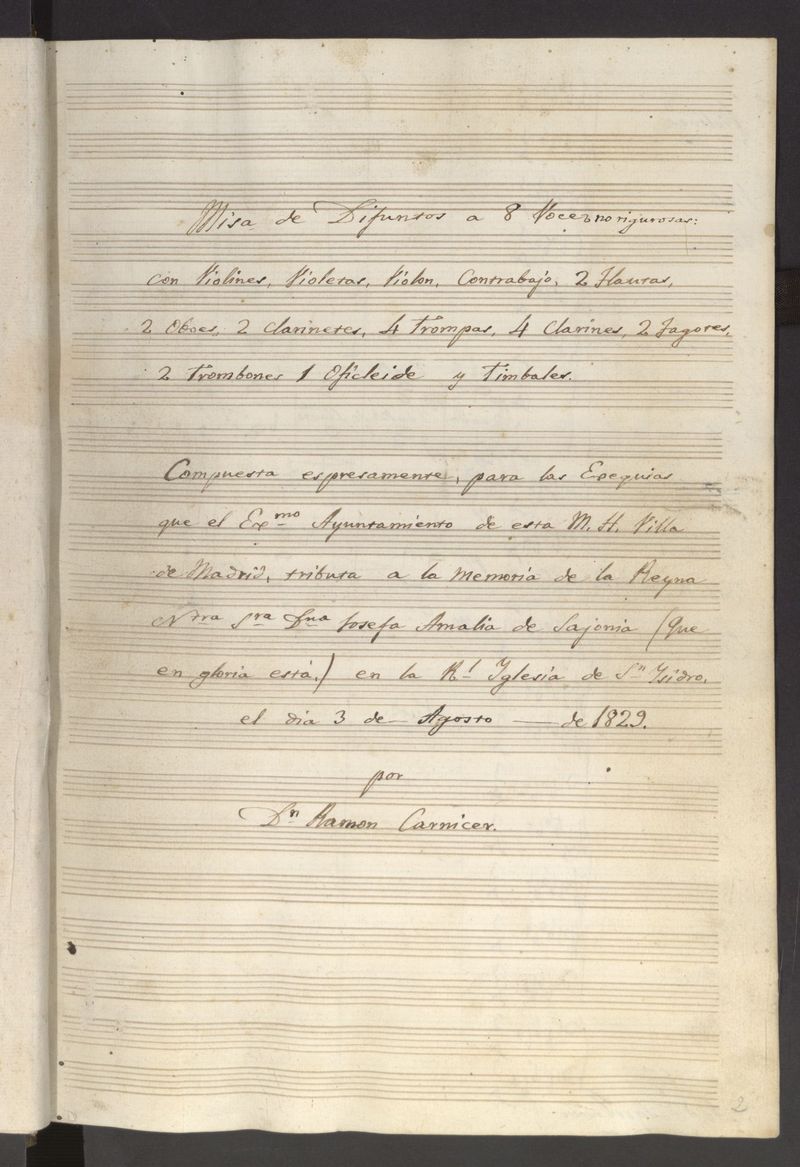 Misa de Difuntos a 8 Voces no rigurosas:
con Violines, Violetas, Violon, Contrabajo, 2 Flautas,
2 Oboes, 2 Clarinetes, 4 Trompas, 4 Clarines, 2 Fagotes,
2 Trombones 1 Oficleide y Timbales.
Compuesta espresamente, para las Exequias
que el Exmo Ayuntamiento de esta M. H. Villa
de Madrid, tributa a la memoria de la Reyna
Ntra Sra Dna Josefa Amalia de Sajonia (que
en gloria está,) en la Rl Yglesia de Sn Ysidro,
el dia 3 de Agosto de 1829.
por
Dn Ramon Carnicer.
2